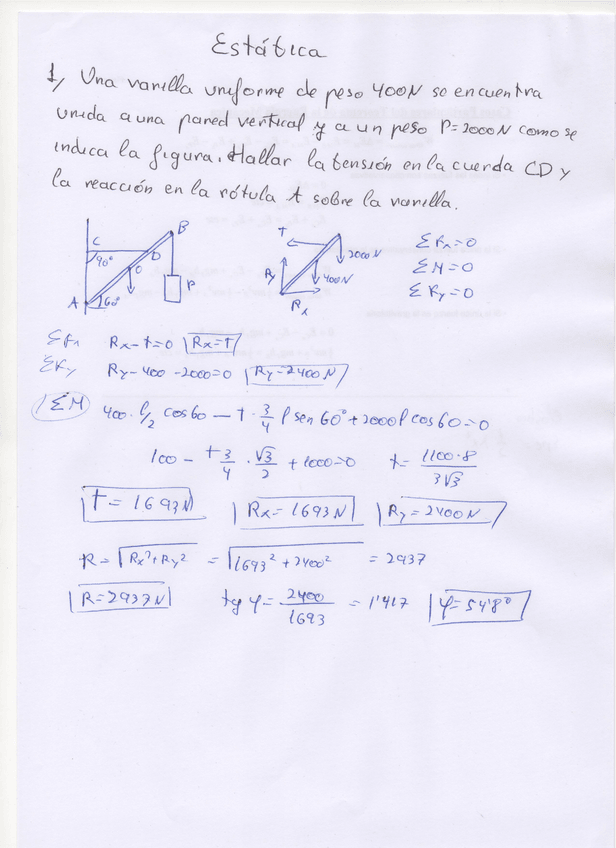 Estática
1, Una varilla uniforme de peso 400N se encuentra
unida a una pared vertical y a un peso P=2000N como se
indica la figura. Hallar la tensión en la cuerda CD y
la reacción en la rótula A sobre la varilla.
C 90° D B O P A 60°
T 2000N 400N Ry Rx
ΣFx=0
ΣM=0
ΣFy=0
ΣFx Rx-t=0 Rx=t
ΣFy Ry-400-2000=0 Ry=2400N
ΣM 400·l/2 cos60 - t·3/4 l sen60° + 2000l cos60=0
100 - t 3/4 · √3/2 + 1000=0 t= 1100·8/3√3
t=1693N Rx=1693N Ry=2400N
R=√Rx²+Ry² = √1693²+2400² = 2937
R=2937N tg φ= 2400/1693 = 1'417 φ=54'8°